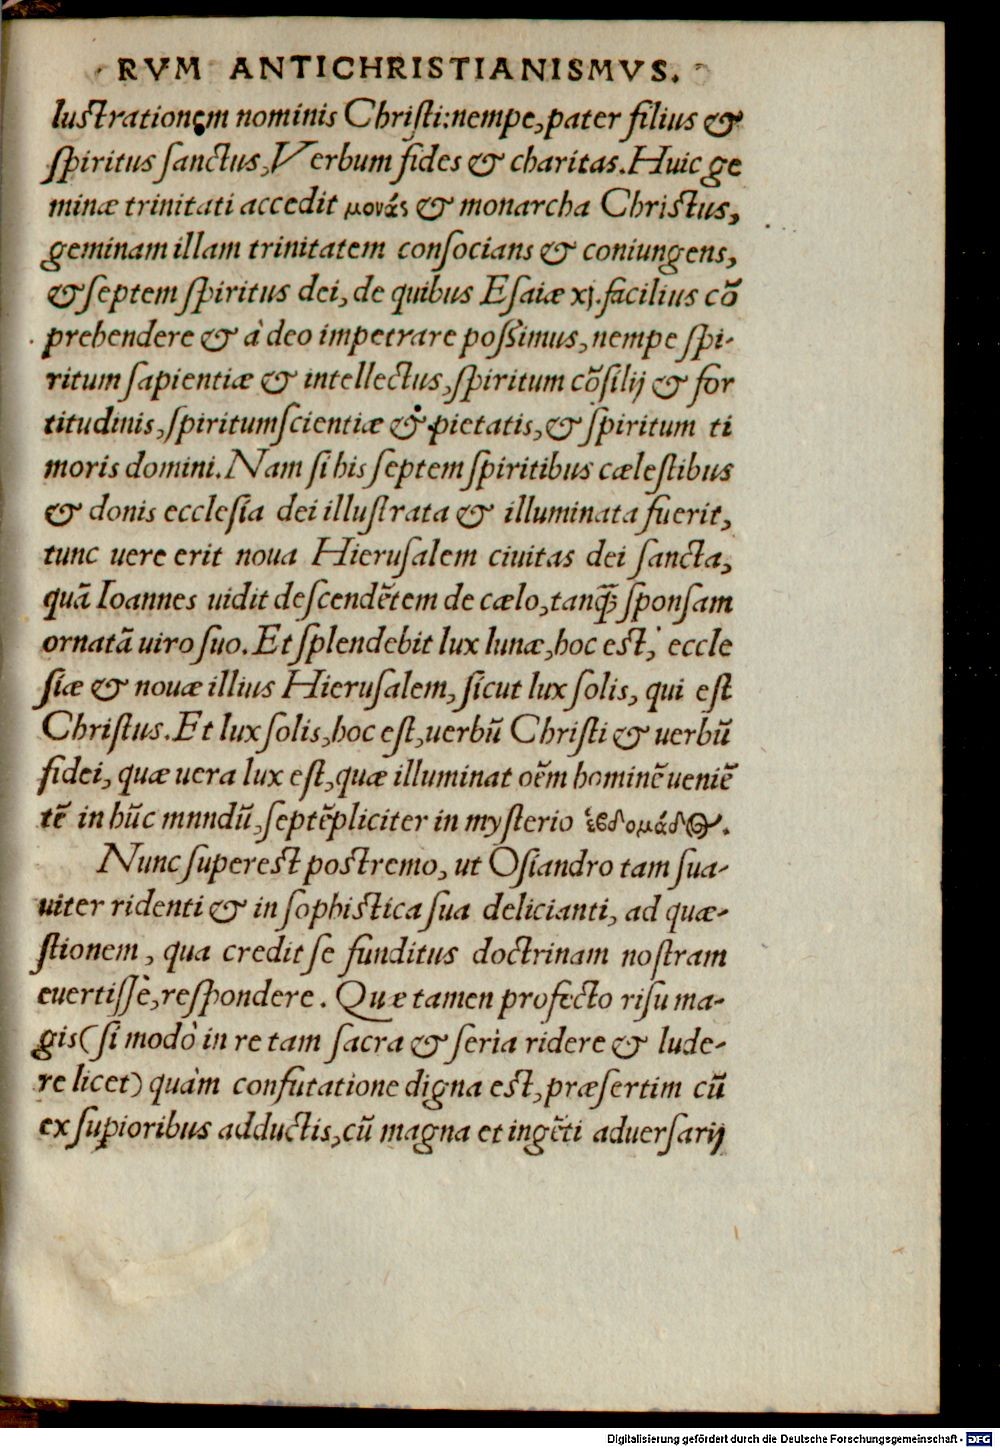 RVM ANTICHRISTIANISMVS.
lustrationem nominis Christi: nempe, pater filius &
spiritus sanctus, Verbum fides & charitas. Huic ge
minæ trinitati accedit μονάς & monarcha Christus,
geminam illam trinitatem consocians & coniungens,
& septem spiritus dei, de quibus Esaiæ xj. facilius cõ
prehendere & à deo impetrare possimus, nempe spi-
ritum sapientiæ & intellectus, spiritum cõsilij & for
titudinis, spiritum scientiæ & pietatis, & spiritum ti
moris domini. Nam si his septem spiritibus cælestibus
& donis ecclesia dei illustrata & illuminata fuerit,
tunc uere erit noua Hierusalem ciuitas dei sancta,
quã Ioannes uidit descendẽtem de cælo, tanq̃ sponsam
ornatã uiro suo. Et splendebit lux lunæ, hoc est, eccle
siæ & nouæ illius Hierusalem, sicut lux solis, qui est
Christus. Et lux solis, hoc est, uerbũ Christi & uerbũ
fidei, quæ uera lux est, quæ illuminat oẽm hominẽ ueniẽ
tẽ in hũc mnndũ, septẽpliciter in mysterio ἑβδομάδος.
Nunc superest postremo, ut Osiandro tam sua-
uiter ridenti & in sophistica sua delicianti, ad quæ-
stionem, qua credit se funditus doctrinam nostram
euertissè, respondere. Quæ tamen profecto risu ma-
gis (si modò in re tam sacra & seria ridere & lude-
re licet) quàm confutatione digna est, præsertim cũ
ex sup̱ioribus adductis, cũ magna et ingẽti aduersarij
Digitalisierung gefördert durch die Deutsche Forschungsgemeinschaft - DFG